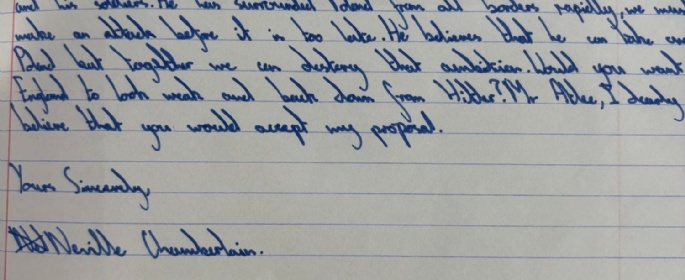 and his soldiers. He has surrounded Poland from all borders rapidly, we must
make an attack before it is too late. He believes that he can take over
Poland but together we can destroy that ambition. Would you want
England to look weak and back down from Hitler? Mr Atlee, I dearly
believe that you would accept my proposal.
Yours Sincerely
Neville Chamberlain.